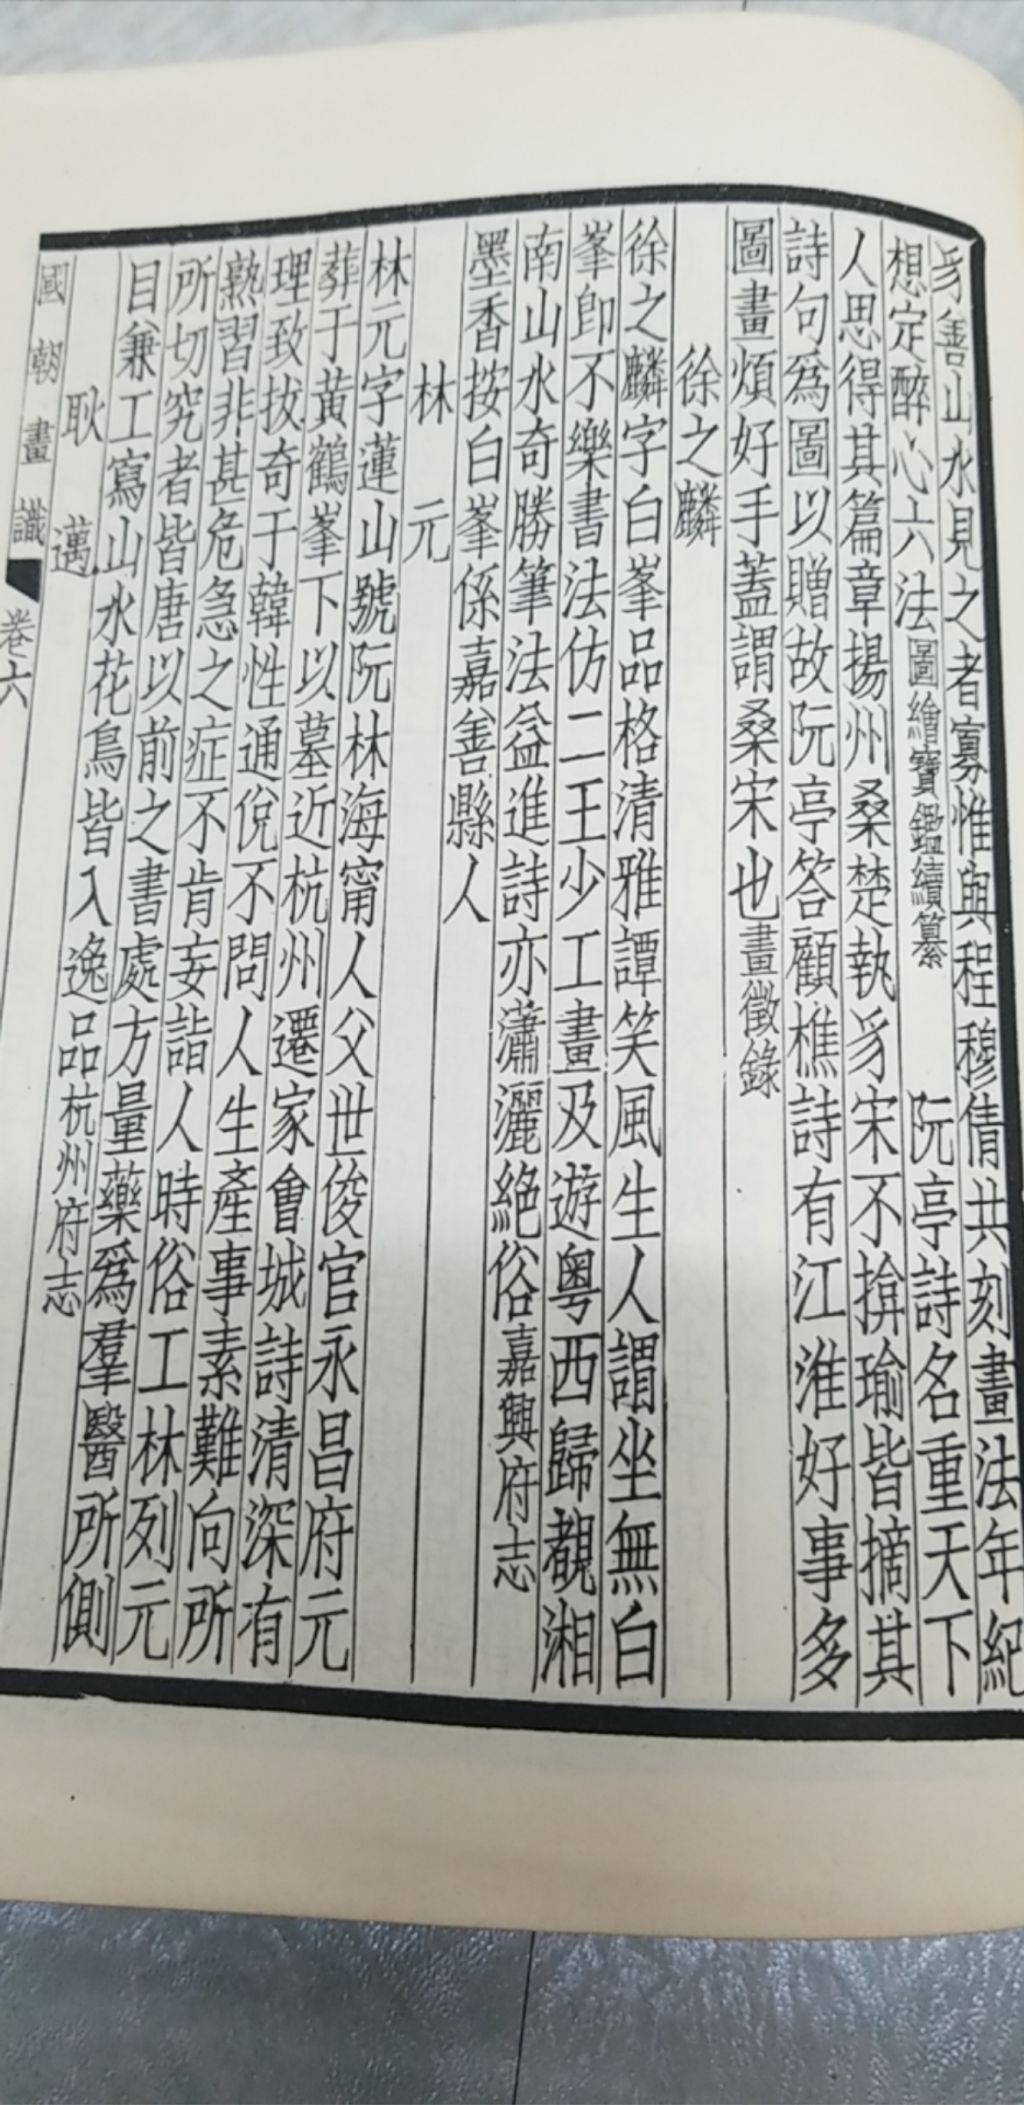 豸善山水見之者寡惟與程穆倩共刻畫法年紀
想定醉心六法圖繪寶鑑續纂 阮亭詩名重天下
人思得其篇章揚州桑楚執豸宋不揜瑜皆摘其
詩句爲圖以贈故阮亭答顧樵詩有江淮好事多
圖畫煩好手蓋謂桑宋也畫徵錄
徐之麟
徐之麟字白峯品格清雅譚笑風生人謂坐無白
峯卽不樂書法仿二王少工畫及遊粤西歸覩湘
南山水奇勝筆法益進詩亦瀟灑絕俗嘉興府志
墨香按白峯係嘉善縣人
林元
林元字蓮山號阮林海甯人父世俊官永昌府元
葬于黃鶴峯下以墓近杭州遷家會城詩清深有
理致拔奇于韓性通侻不問人生產事素難向所
熟習非甚危急之症不肯妄詣人時俗工林列元
所切究者皆唐以前之書處方量藥爲羣醫所側
目兼工寫山水花鳥皆入逸品杭州府志
耿邁
國朝畫識 卷六